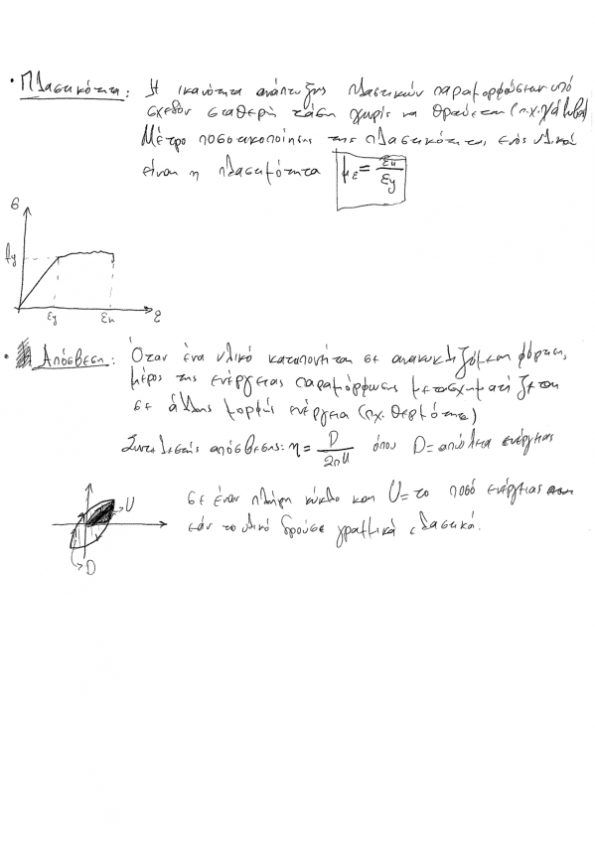 • Πλαστικότητα: Η ικανότητα ανάπτυξης πλαστικών παραμορφώσεων υπό
σχεδόν σταθερή τάση χωρίς να θραύεται (π.χ. χάλυβα)
Μέτρο ποσοτικοποίησης της πλαστικότητας ενός υλικού
είναι η πλαστιμότητα με = εu/εy
σ
fy
εy εu ε
• Απόσβεση: Όταν ένα υλικό καταπονήται σε ανακυκλιζόμενη φόρτιση,
μέρος της ενέργειας παραμόρφωσης μετασχηματίζεται
σε άλλης μορφής ενέργεια (πχ. θερμότητα)
Συντελεστής απόσβεσης: η = D/2πU όπου D = απώλεια ενέργειας
σε έναν πλήρη κύκλο και U = το ποσό ενέργειας
εάν το υλικό δρούσε γραμμικά ελαστικά.
U
D